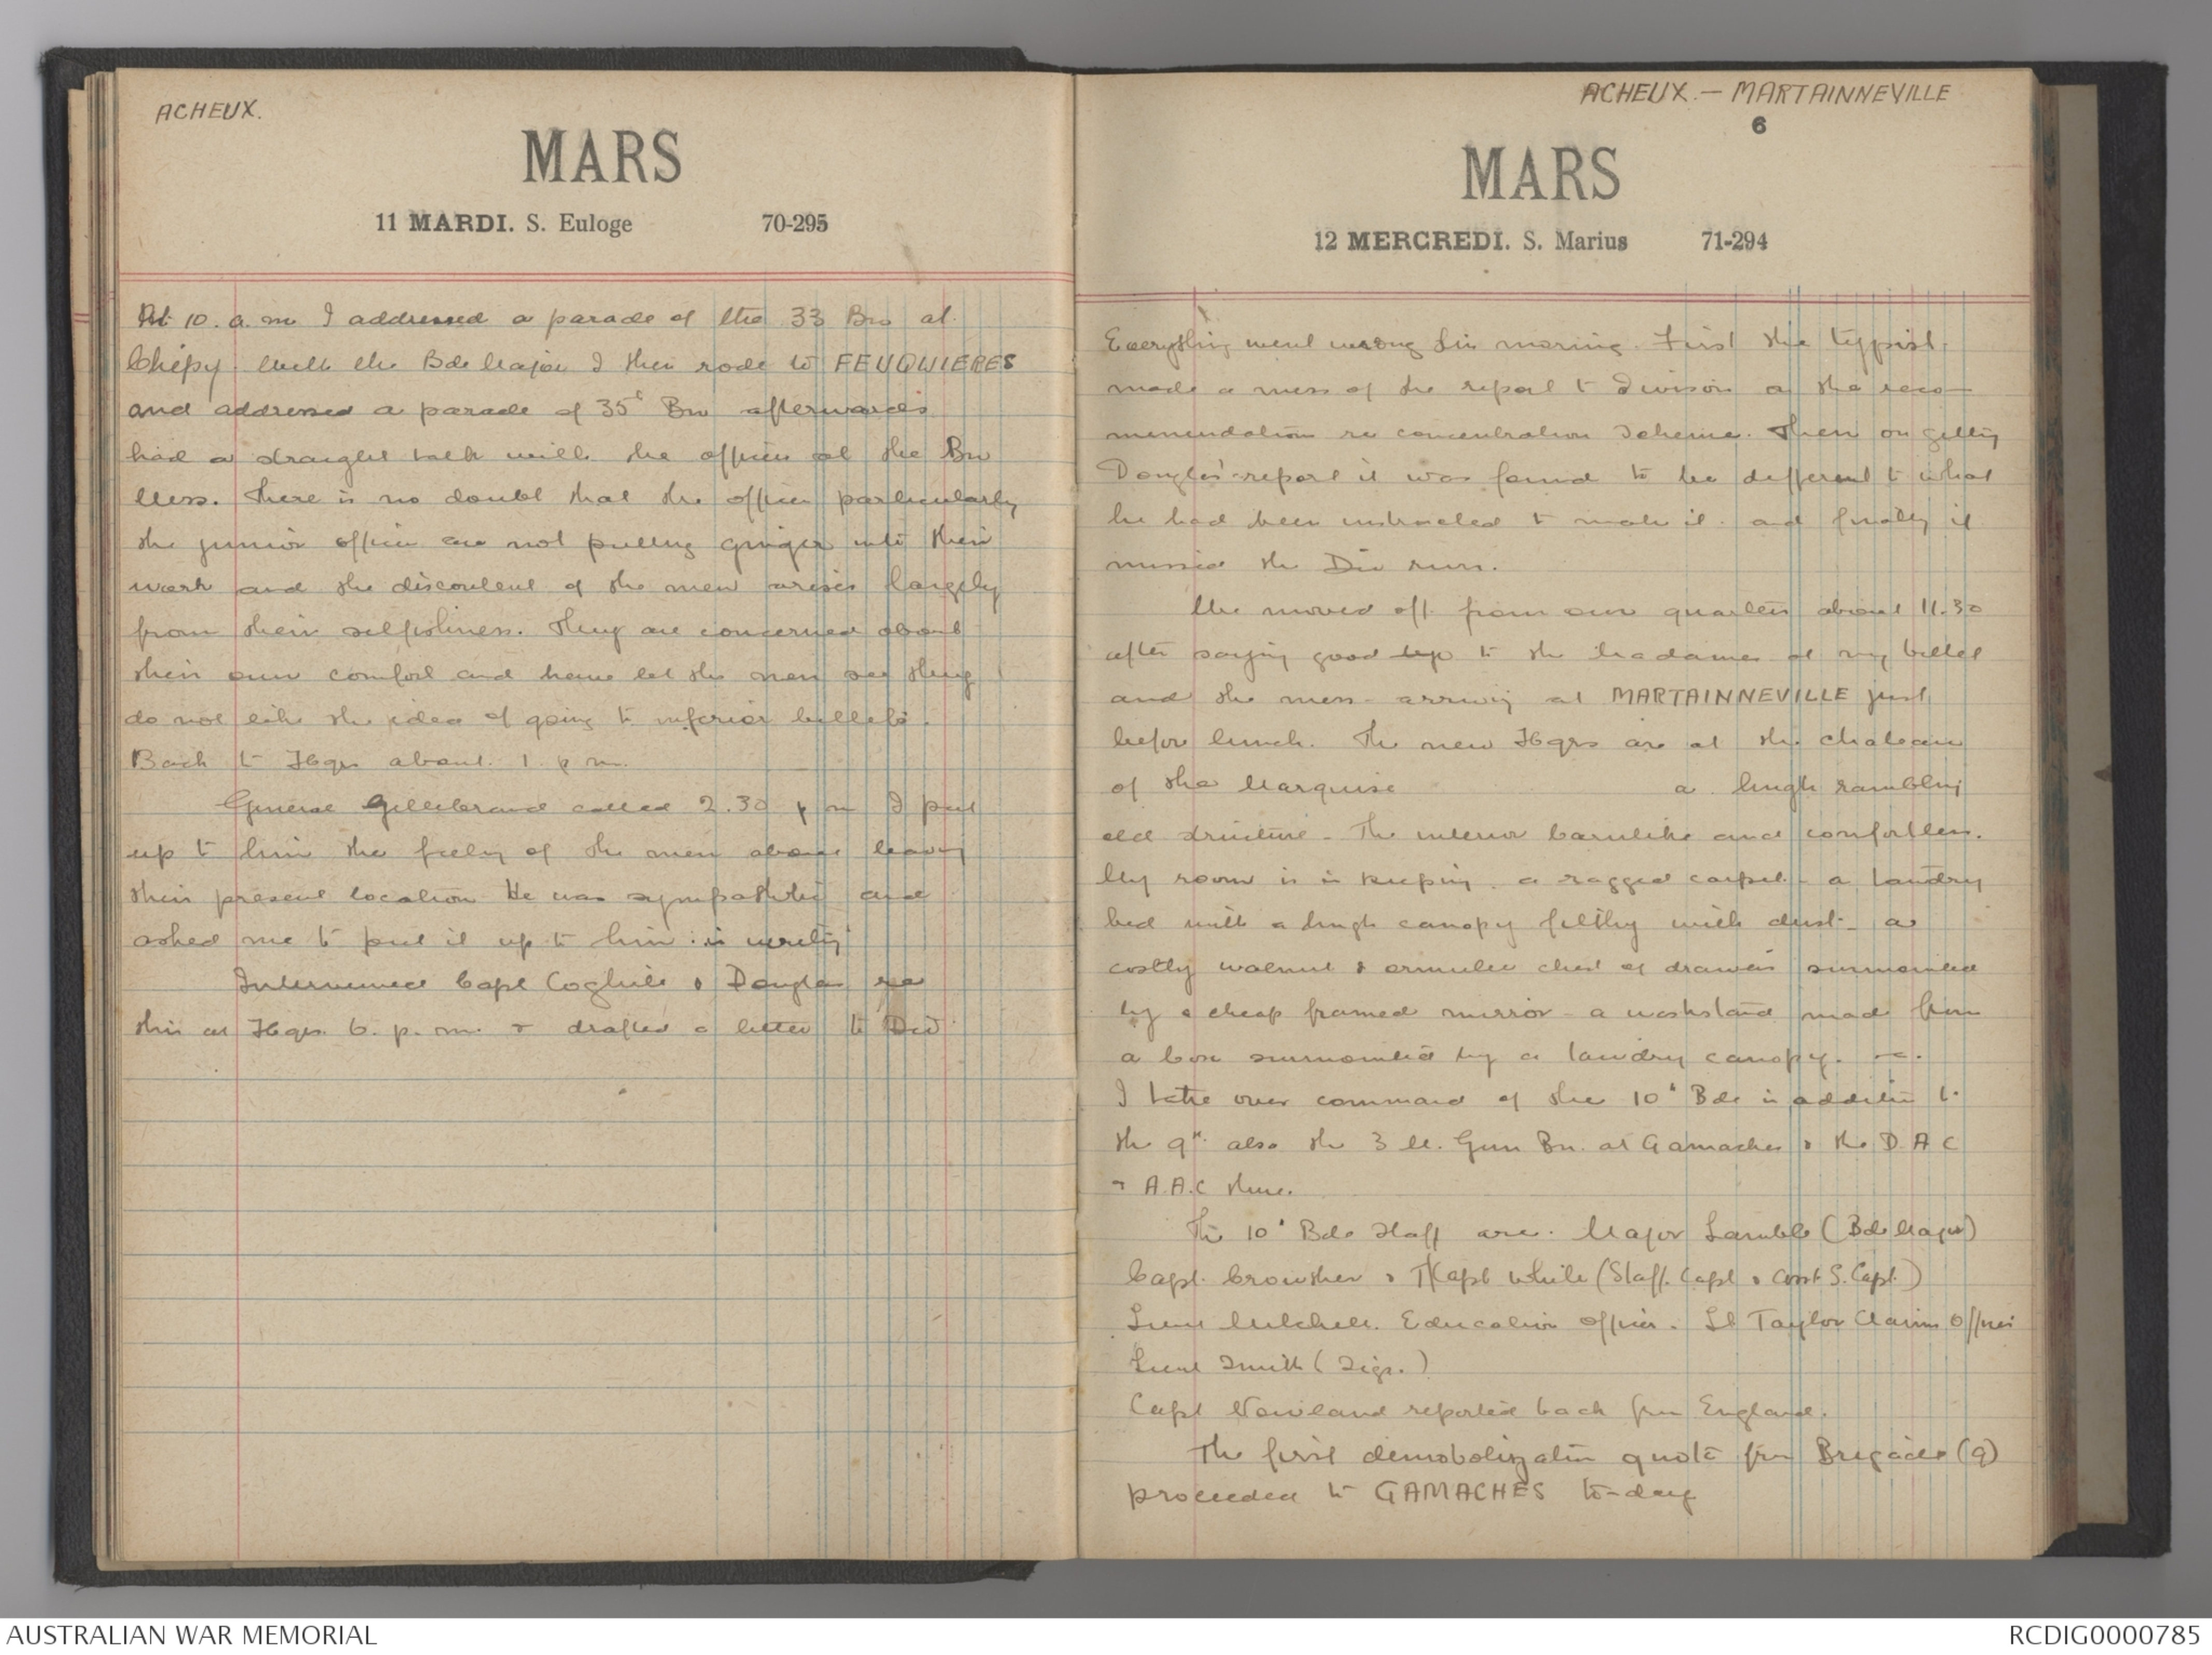 ACHEUX.
MARS
11 MARDI. S. Euloge 70-295
At 10. a. m I addressed a parade of the 33 Bn at
Chépy. With the Bde Major I then rode to FEUQUIERES
and addressed a parade of 35t Bn afterwards
had a straight talk with the officers at the Bn
Mess. There is no doubt that the officers particularly
the junior officers are not putting ginger into their
work and the discontent of the men arises largely
from their selfishness. They are concerned about
their own comfort and have let the men see they
do not like the idea of going to inferior billets.
Back to Hqrs about. 1. p m.
General Gellibrand called 2.30 p m I put
up to him the feeling of the men about leaving
their present location He was sympathetic and
asked me to put it up to him in writing
Interviewed Capt Coghill & Douglas re
this at Hqrs. 6. p. m. & drafted a letter to Div.
ACHEUX. — MARTAINNEVILLE
6
MARS
12 MERCREDI. S. Marius 71-294
Everything went wrong this morning. First the typist
made a mess of the report to Division on the recom
mendation re concentration scheme. Then on getting
Douglas' report it was found to be different to what
he had been instructed to make it. and finally it
missed the Div run.
We moved off from our quarters about 11.30
after saying good bye to the Madames at my billet
and the mess - arriving at MARTAINNEVILLE just
before lunch. The new Hqrs are at the chateau
of the Marquise a. hugh rambling
old structure - The interior barnlike and comfortless.
My room is in keeping. a ragged carpet - a tawdry
bed with a hugh canopy filthy with dust - a
costly walnut & ormulu chest of drawers surmounted
by a cheap framed mirror - a washstand made from
a box surmounted by a tawdry canopy.
I take over command of the 10t Bde in addition to
the 9th also the 3 M. Gun Bn. at Gamaches & the D.A.C
& A.A.C there.
The 10t Bde Staff are. Major Lamble (Bde Major)
Capt. Crowther & Capt While (Staff. Capt & asst S. Capt.)
Lieut Mitchell. Education officer. Lt Taylor Claims Officer
Lieut Smith (Sigs.)
Capt Newland reported back from England.
The first demobolization quota from Brigade (9)
proceeded to GAMACHES to-day
AUSTRALIAN WAR MEMORIAL
RCDIG0000785